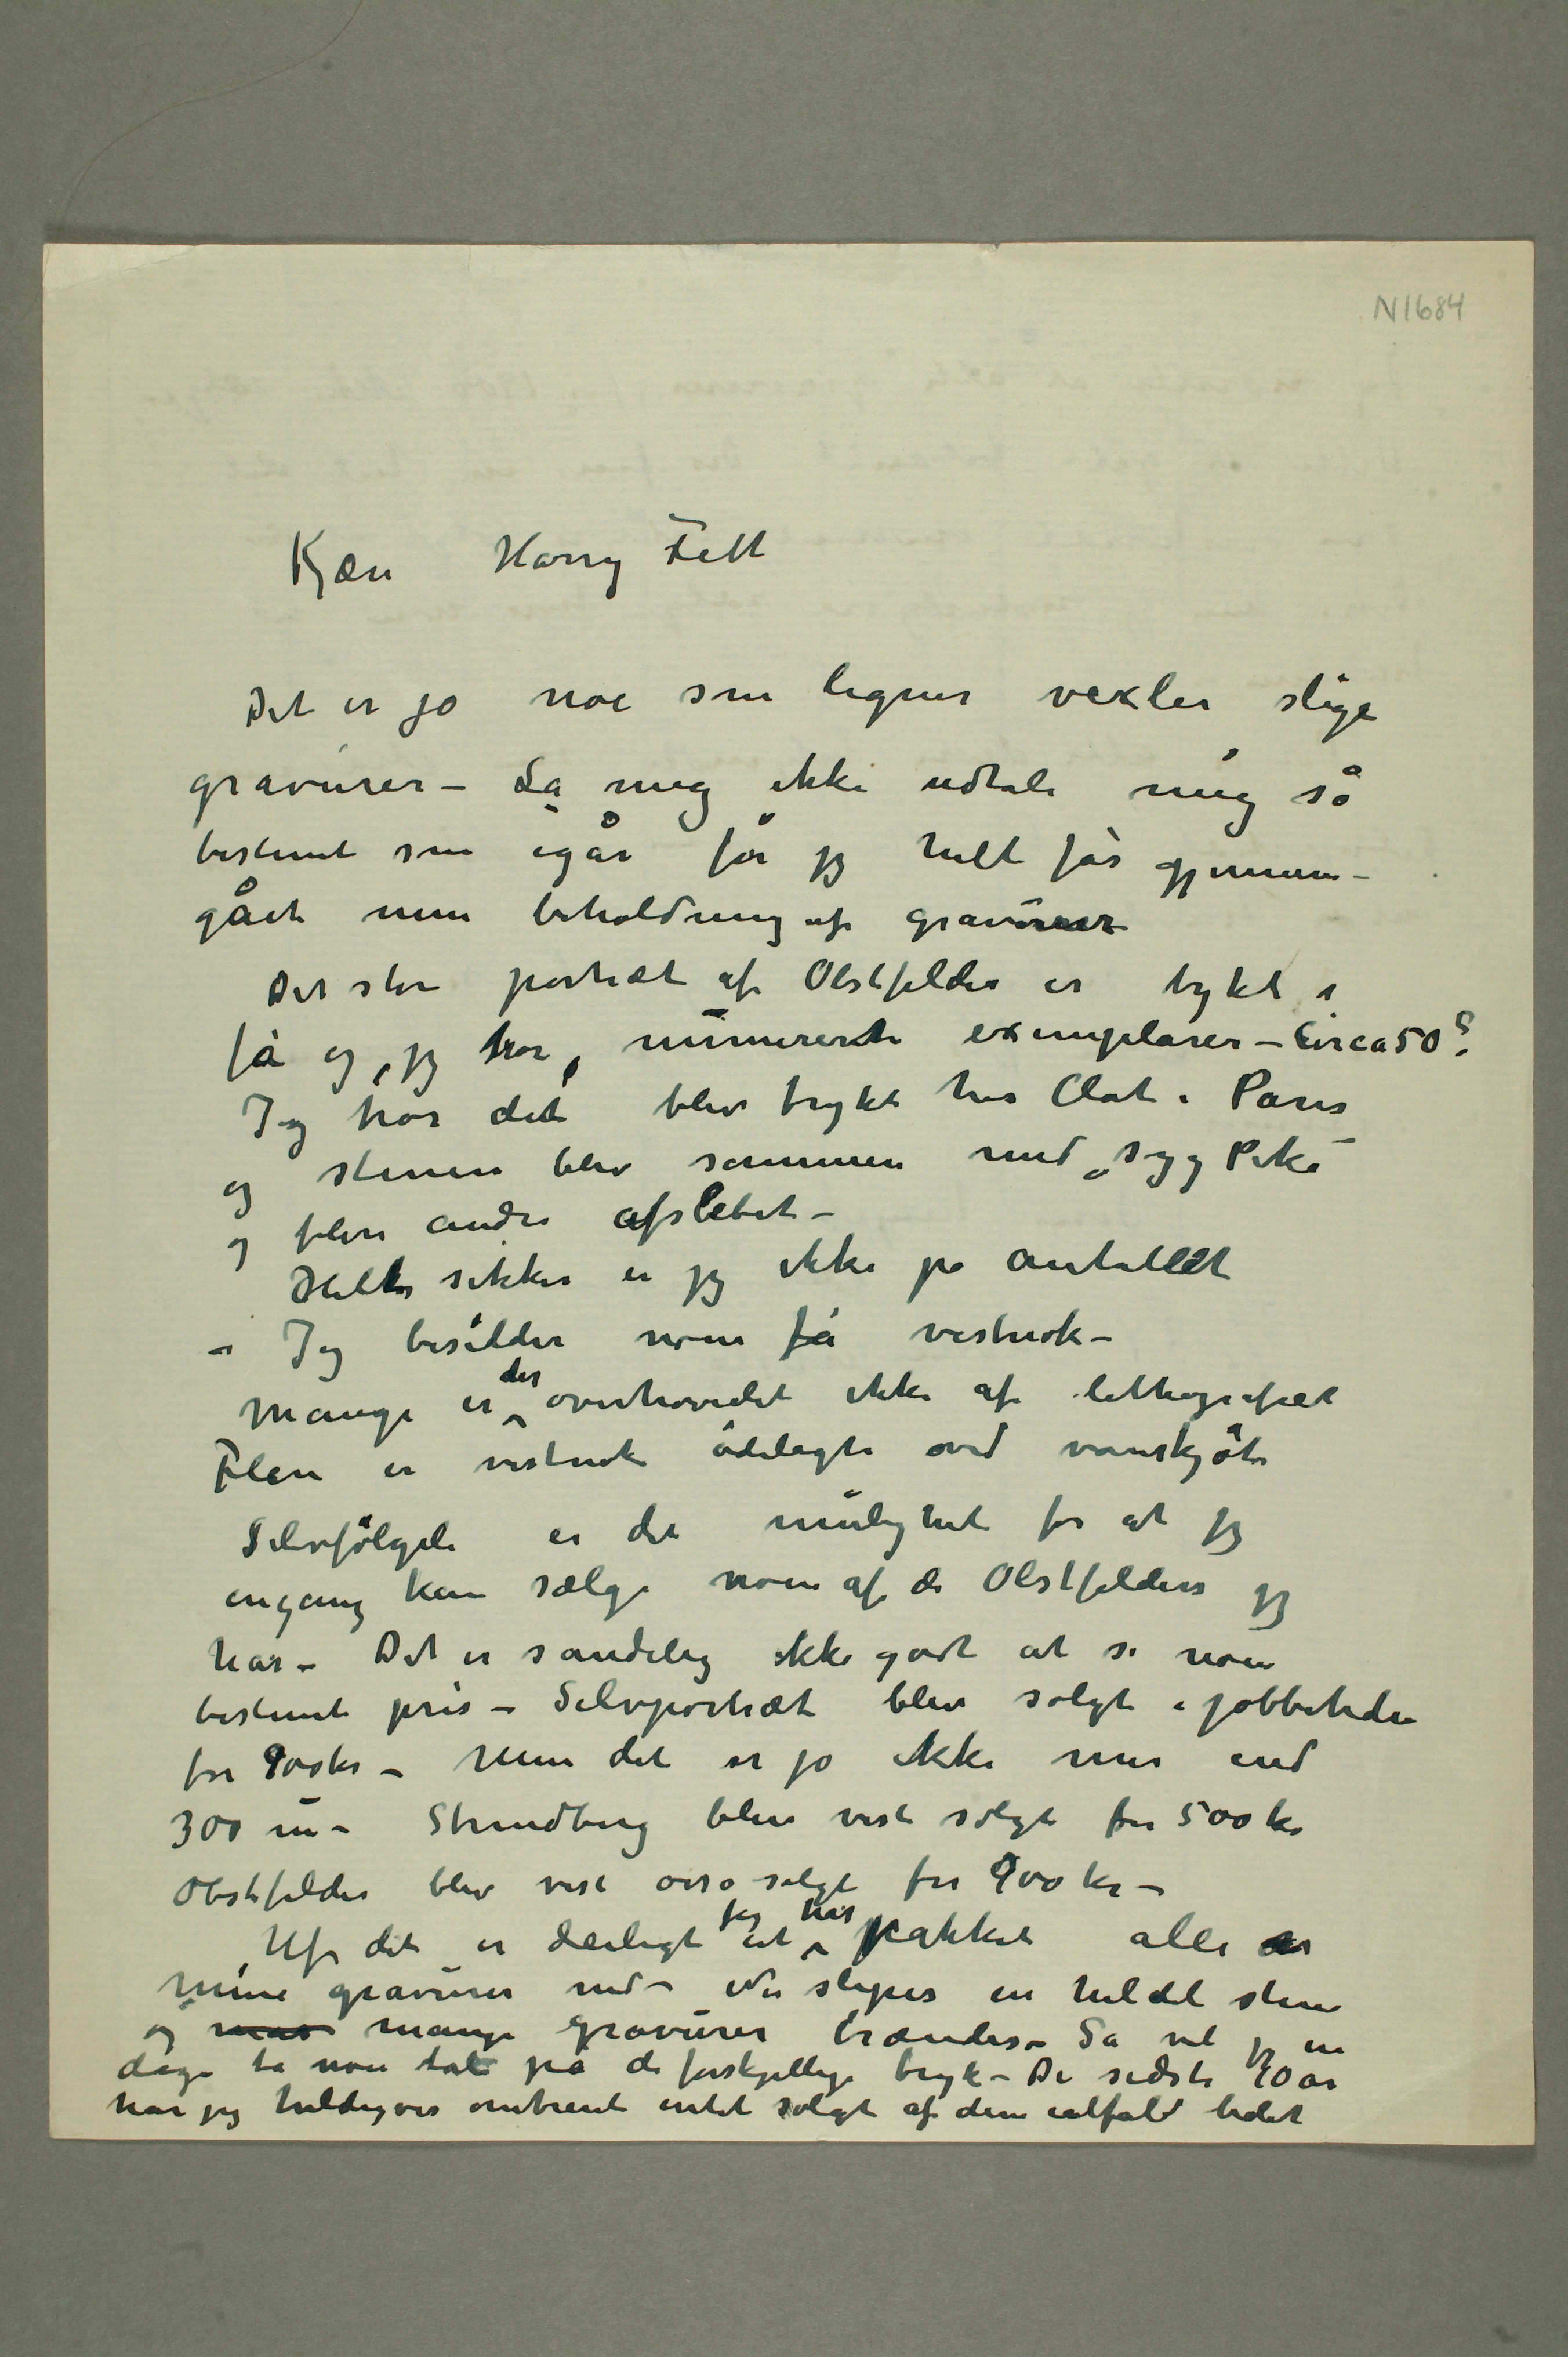 N1684
Kjære Harry Fett
Det er jo noe som ligner vexler slige
gravürer – La mig ikke udtale mig så
bestemt som igår før jeg helt får gjennem-
gået min beholdning af gravürer
Det store portræt af Olstfelder er trykt i
få og, jeg tror, nümererte exemplarer – Circa 50?
Jeg tror det blev trykt hos Clot i Paris
og stenen blev sammen med „Syg Pike“
og flere andre afslebet –
Helt sikker er jeg ikke på antallet
– Jeg besidder noen få vistnok –
Mange er der overhovedet ikke af lithografiet
Flere er vistnok ødelagte ved vanskjøt
Selvfølgeli er det mulighet for at jeg
engang kan sælge noen af de Olstfeldere jeg
har – Det er sandelig ikke godt at si noen
bestemt pris – Selvportræt blev solgt i jobbetiden
for 900 kr – Men det er jo ikke mer end
300 nu – Strindberg blev vist solgt for 500 kr
Obstfelder blev vist også solgt for 900 kr –
Uf, det er deiligt at jeg har pakket alle
mine gravürer ned – Nu slipes en heldel stene
og mange gravürer brændes – Så vil jeg en
dag ta noen tal på de forskjellige tryk – De sidste 10 år
har jeg heldigvis omtrent intet solgt af dem ialfald lidet